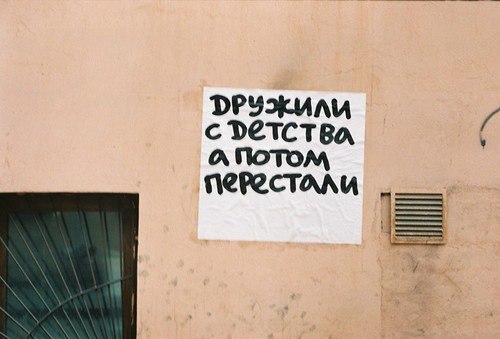 ДРУЖИЛИ
С ДЕТСТВА
А ПОТОМ
ПЕРЕСТАЛИ